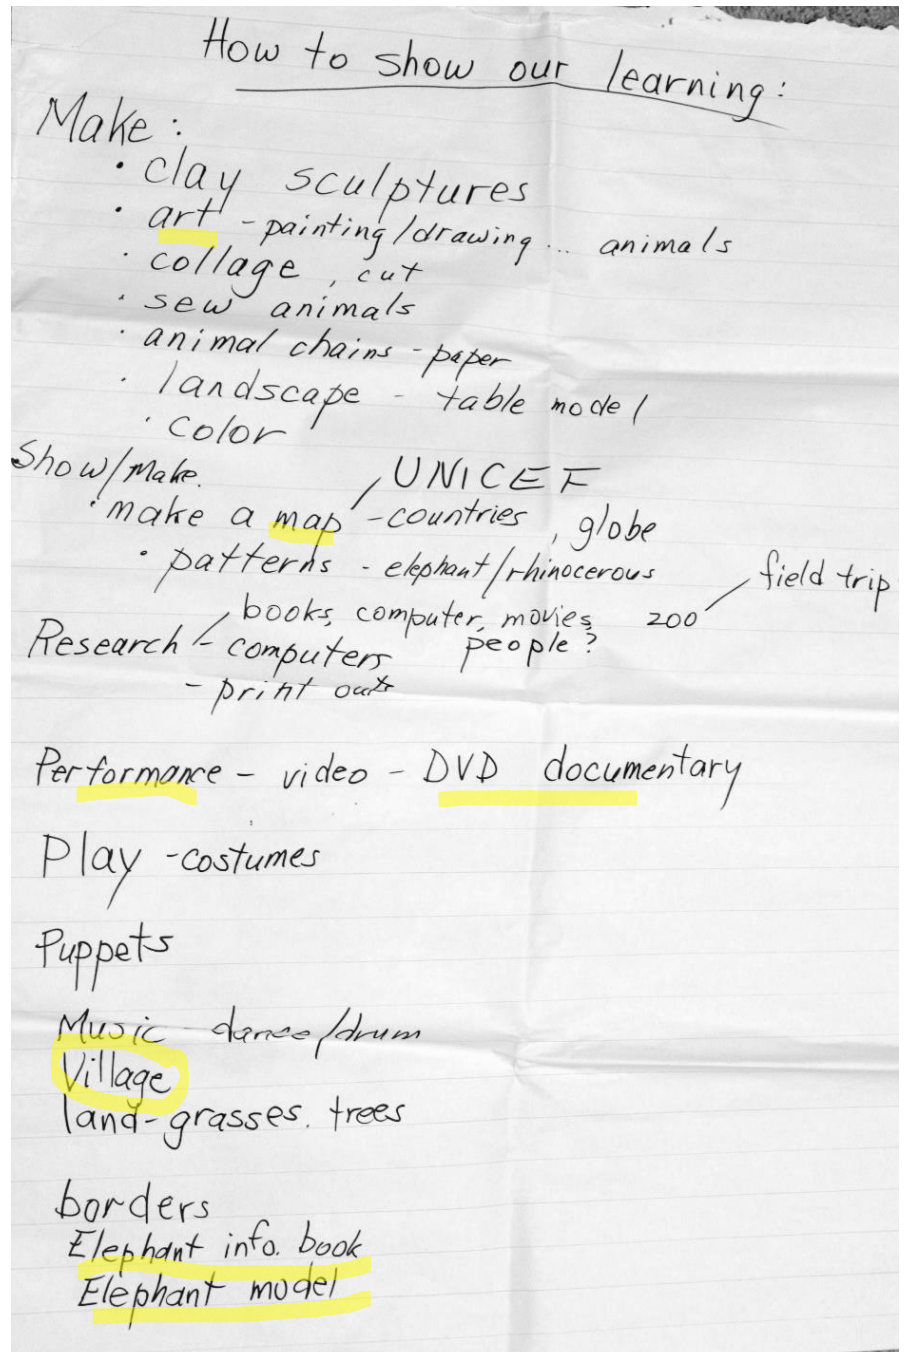 How to show our learning:
Make:
· clay sculptures
· art - painting/drawing... animals
· collage, cut
· sew animals
· animal chains - paper
· landscape - table model
· color
Show/Make.
UNICEF
· make a map - countries, globe
· patterns - elephant/rhinocerous
field trip
books, computer, movies, zoo
people?
Research - computers
- print outs
Performance - video - DVD documentary
Play - costumes
Puppets
Music - dance/drum
Village
land - grasses. trees
borders
Elephant info. book
Elephant model